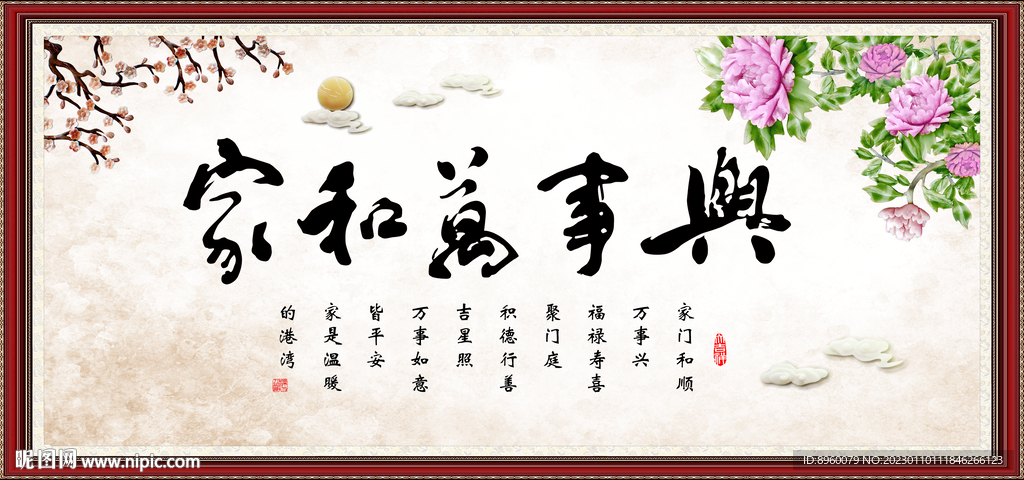 家和萬事興
家门和顺
万事兴
福禄寿喜
聚门庭
积德行善
吉星照
万事如意
皆平安
家是温暖
的港湾
昵图网 www.nipic.com
ID:8960079 NO:20230110111846266123